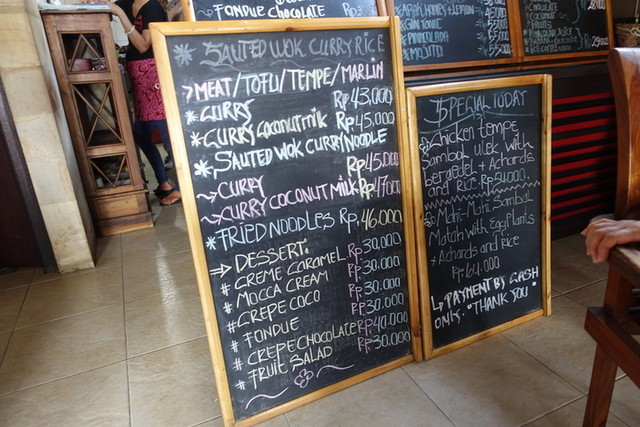 FONDUE CHOCOLATE
SAUTED WOK CURRY RICE
>MEAT/TOFU/TEMPE/MARLIN
*CURRY Rp 43,000
*CURRY COCONUT MILK Rp 45,000
*SAUTED WOK CURRY NOODLE
CURRY Rp 45,000
CURRY COCONUT MILK Rp 47,000
*FRIED NOODLES Rp 46,000
DESSERT:
# CREME CARAMEL Rp 30.000
# MOCCA CREAM Rp 30.000
# CREPE COCO Rp 30.000
# FONDUE Rp 30.000
# CREPE CHOCOLATE Rp 40.000
# FRUIT SALAD Rp 30.000
SPECIAL TODAY
Chicken tempe
Sambal ulek with
bergedel + Achards
and Rice Rp 54000.
Mahi-Mahi Sambal
Matah with Eggplants
+ Achards and Rice
Rp 64.000
PAYMENT BY CASH
ONLY. "THANK YOU"